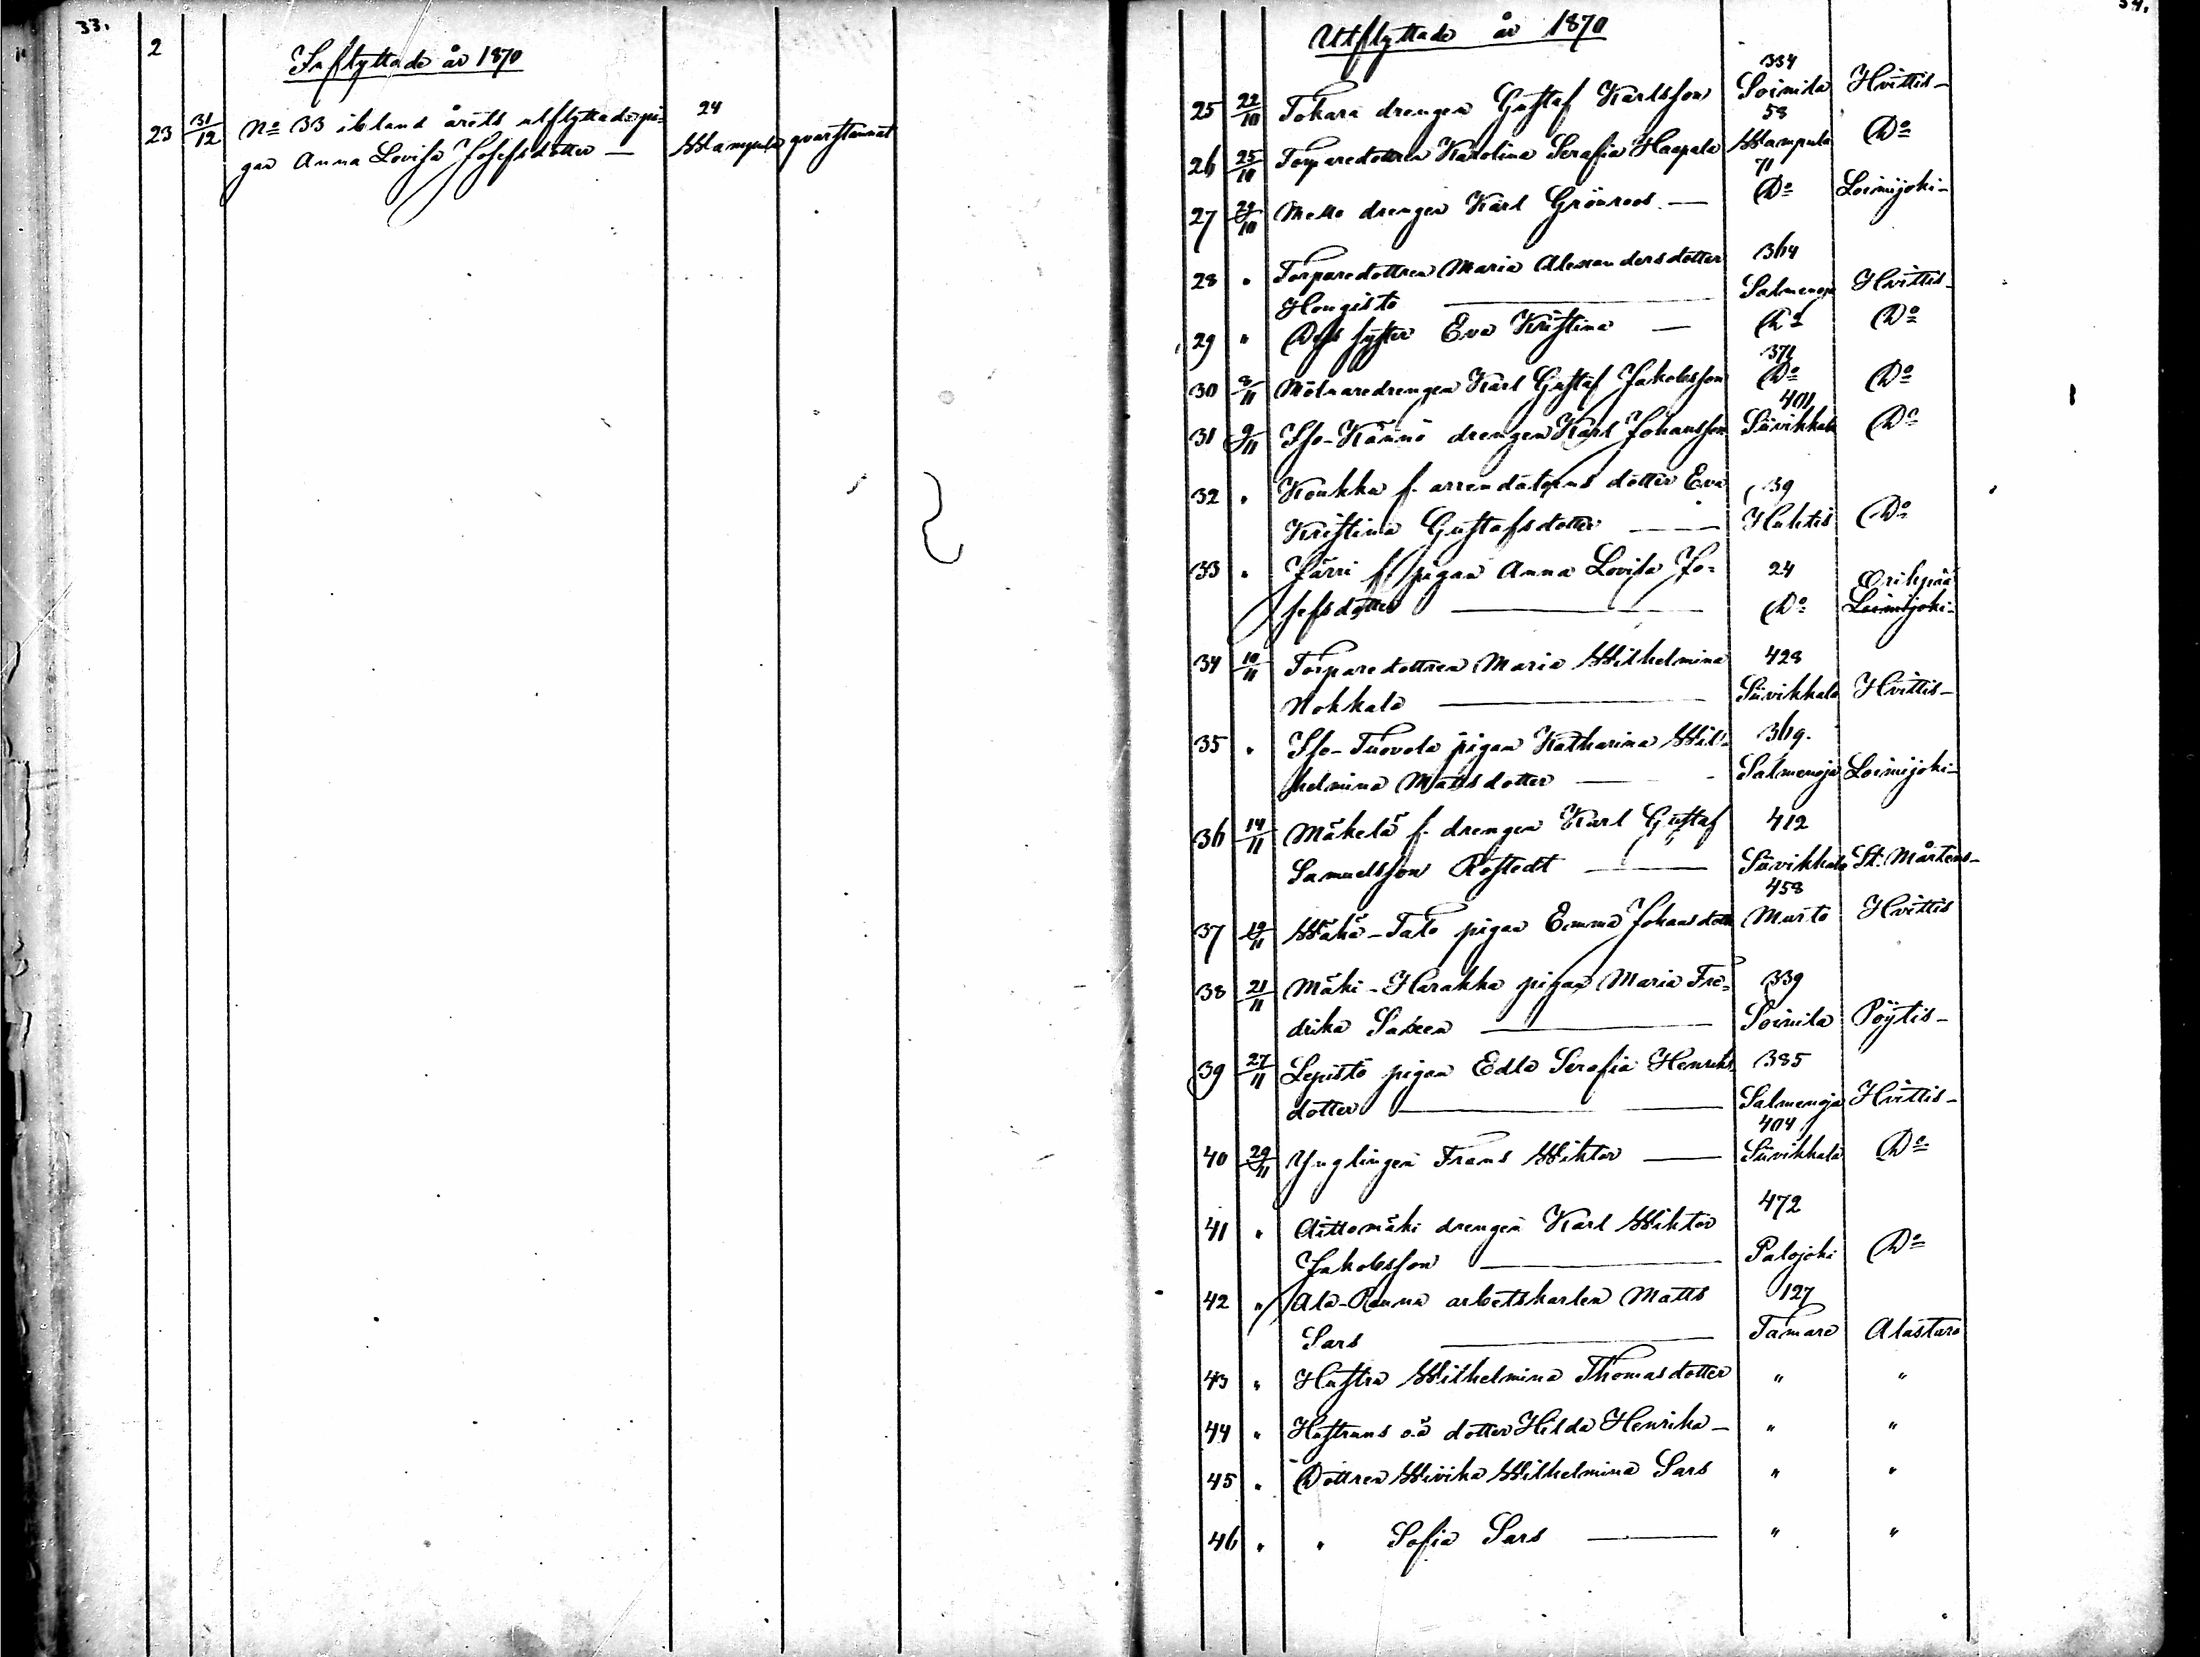 33.
2
Inflyttade år 1870
23 31/12 No 33 ibland årets utflyttade, pi= 24
gan Anna Lovisa Josefsdotter — Wampula qvarstannat
34.
Utflyttade år 1870
334
25 22/10 Tokara drengen Gustaf Karlsson Soinila Hvittis-
58
26 25/10 Torparedottren Karolina Serafia Haapala Wampula Do
71
27 29/10 Mello drengen Karl Grönroos — Do Loimijoki-
28 " Torparedottren Maria Alexandersdotter 364
Hongisto — Salmenoja Hvittis-
29 " Dess syster Eva Kristina — Do Do
371
30 8/11 Mölnaredrengen Karl Gustaf Jakobsson Do Do
401
31 9/11 Iso-Kännö drengen Karl Johansson Sürikkala Do
32 " Koukka f. arrendatorns dotter Eva 39
Kristina Gustafsdotter — Huhtis Do
33 " Järri f. pigan Anna Lovisa Jo= 24 Oripää
sefsdotter — Do Loimijoki-
34 10/11 Torparedottren Maria Wilhelmina 428
Nokkala — Sürikkala Hvittis-
35 " Iso-Tuovola pigan Katharina Wil= 369.
helmina Mattsdotter — Salmenoja Loimijoki-
36 14/11 Mäkelä f. drengen Karl Gustaf 412
Samuelsson Rostedt — Sürikkala St. Mårtens-
458
37 19/11 Wähä-Talo pigan Emma Johansdotter Murto Hvittis
38 21/11 Mäki-Harakka pigan Maria Fre= 339
drika — Soinila Pöytis-
39 27/11 Lepistö pigan Edla Serafia Henriks 385
dotter — Salmenoja Hvittis-
404
40 29/11 Ynglingen Frans Wiktor — Sürikkala Do
41 " Aittomäki drengen Karl Wiktor 472
Jakobsson — Palojoki Do
42 " Ala-Rauna arbetskarlen Matts 127
Sars — Tamare Alastaro
43 " Hustru Wilhelmina Thomasdotter " "
44 " Hustruns o.ä dotter Hilda Henrika — " "
45 " Dottren Wivika Wilhelmina Sars " "
46 " " Sofia Sars — " "